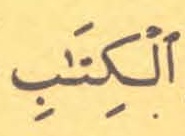 ٱلْكِتَٰبِ